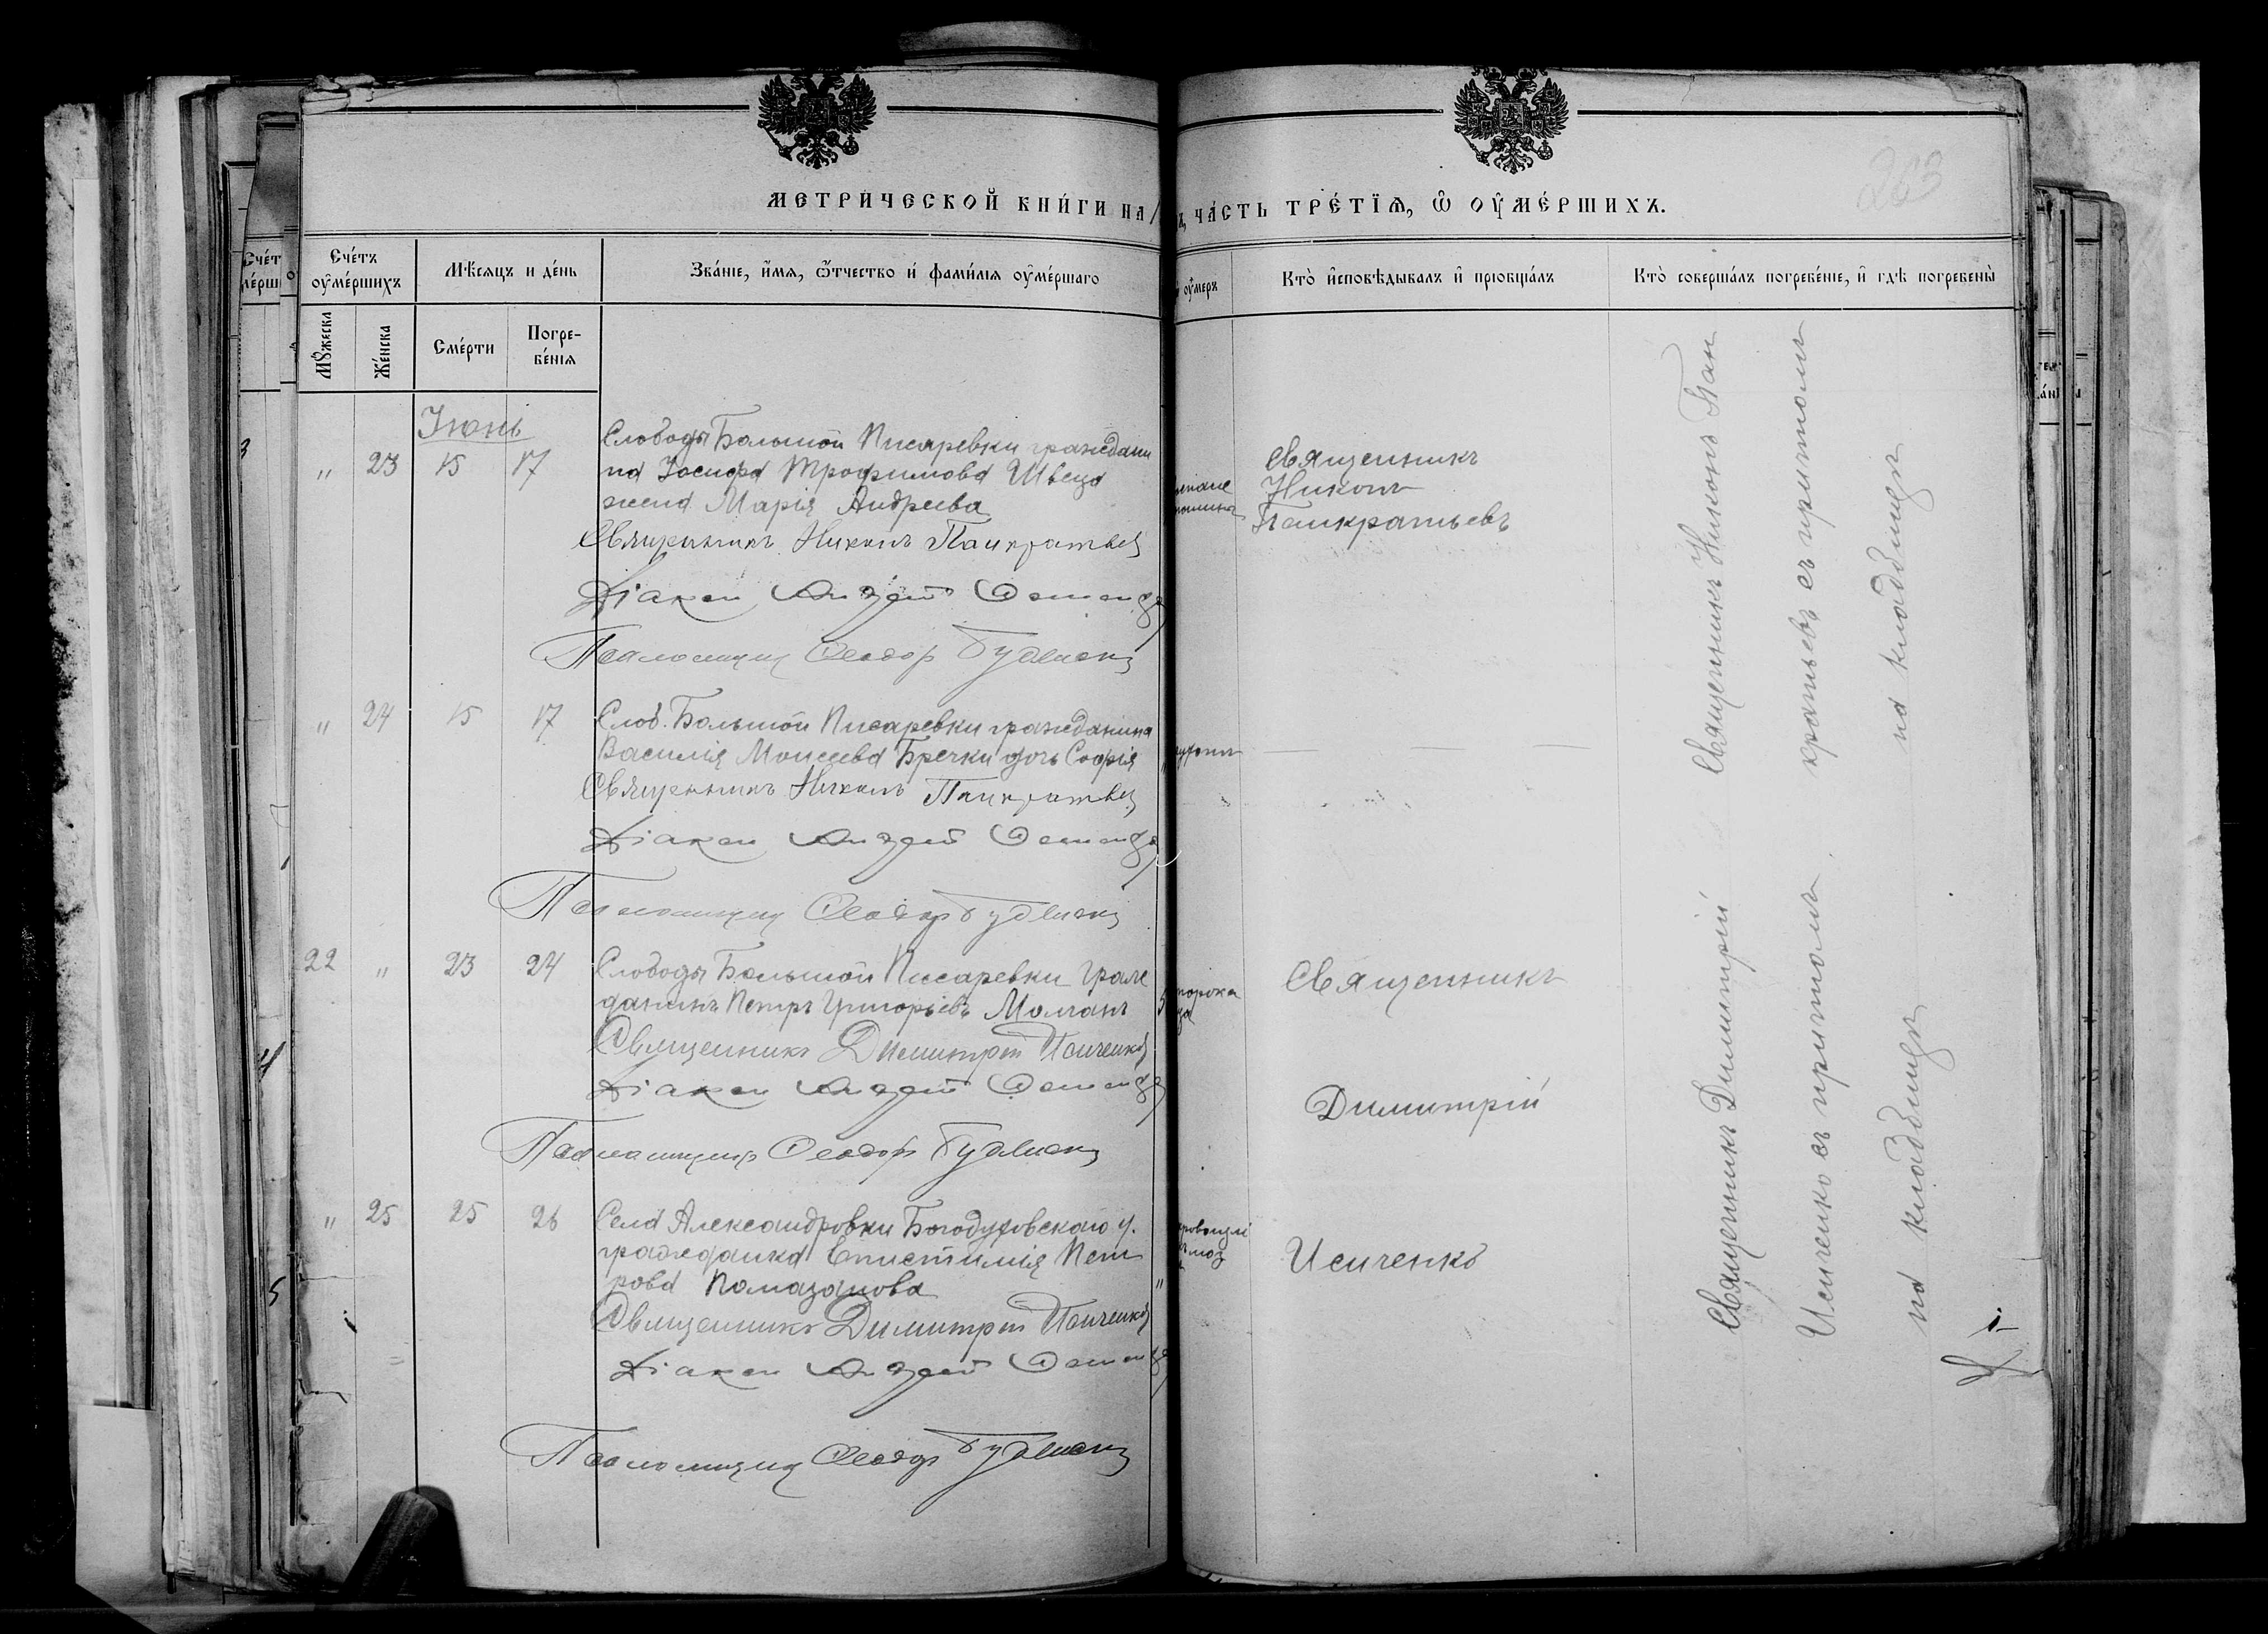 263
МЕТРИЧЕСКОЙ КНИГИ НА
ЧАСТЬ ТРЕТІЯ, Ѡ ОУМЕРШИХЪ.
Счетъ оумершихъ
Мѣсяцъ и день
Званіе, имя, отчество и фамилія оумершаго
оумеръ
Кто исповѣдывалъ и пріобщалъ
Кто совершалъ погребеніе, и гдѣ погребены
Мужеска
Женска
Смерти
Погре-
бенія
Іюнь
" 23 15 17
Слободы Большой Писаревки граждани
на Іосифа Трофимова Швеца
жена Марія Андреева
Священникъ Никонъ Панкратьев
Діакон Андрей
Псаломщик Феодор
Священникъ
Никонъ
Панкратьевъ
Священникъ Никонъ Пан
кратьевъ съ причтомъ
на кладбищѣ
" 24 15 17
Слоб. Большой Писаревки гражданина
Василія Моисеева Бречки дочь Софія
Священникъ Никонъ Панкратьев
Діакон Андрей
Псаломщик Феодор
22 " 23 24
Слободы Большой Писаревки граж
данинъ Петръ Григорьевъ Молчанъ
Священникъ Димитрій Исиченко
Діакон Андрей
Псаломщик Феодор
порока
Священникъ
Димитрій
Исиченко
Священникъ Димитрій
Исиченко съ причтомъ
на кладбищѣ
" 25 25 26
Села Александровки Богодуховскаго у.
гражданка Епистимія Пет
рова Помазанова
Священникъ Димитрій Исиченко
Діакон Андрей
Псаломщик Феодор